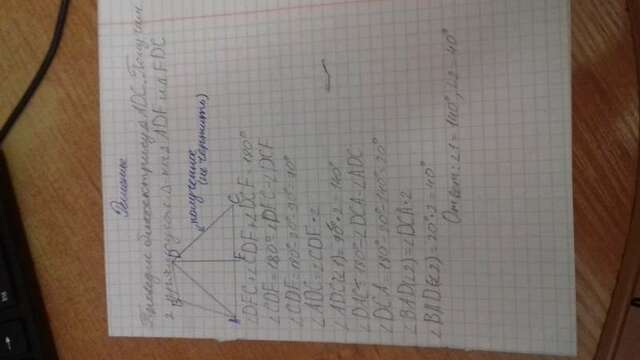 Решение
Проведём биссектрису Δ ADC. Получим
2 прямоугол. Δ-ка Δ ADF и Δ FDC
B D
полученное
(не чертить)
A F C
∠DFC+∠CDF+∠DCF=180°
∠CDF=180°-∠DFC-∠DCF
∠CDF=180°-20°-90°=70°
∠ADC=∠CDF·2
∠ADC(∠1)=70°·2=140°
∠DAC=180°-∠DCA-∠ADC
∠DCA=180°-20°-140°=20°
∠BAD(∠2)=∠DCA·2
∠BAD(∠2)=20°·2=40°
Ответ: ∠1=140°, ∠2=40°